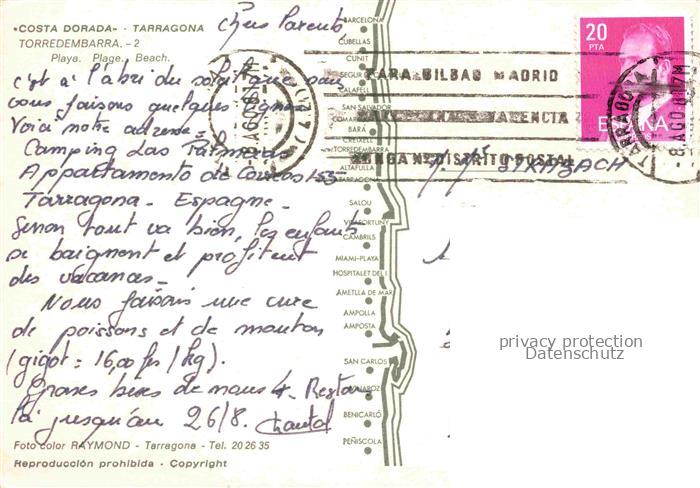 "COSTA DORADA" - TARRAGONA
TORREDEMBARRA. - 2
Playa. Plage. Beach.
Chers Parents
c'est à l'abri du soleil que
vous faisons quelques lignes
Voici notre adresse =
Camping Las Palmeras
Appartamento de Correos 155
Tarragona - Espagne -
Sinon tout va bien, les enfants
se baignent et profitent
des vacances -
Nous faisons une cure
de poissons et de mouton
(gigot = 16,00 frs / kg).
Grosses bises de nous 4. Reste
là jusqu'au 26/8. Chantal
Foto color RAYMOND - Tarragona - Tel. 20 26 35
Reproducción prohibida - Copyright
BARCELONA
CUBELLAS
CUNIT
CALAFELL
SAN SALVADOR
BARÁ
CREIXELL
TORREDEMBARRA
ALTAFULLA
TARRAGONA
SALOU
VILAFORTUNY
CAMBRILS
MIAMI-PLAYA
HOSPITALET DEL I.
AMETLLA DE MAR
AMPOLLA
AMPOSTA
SAN CARLOS
VINAROZ
BENICARLÓ
PEÑISCOLA
20
PTA
ESPAÑA
PARA BILBAO MADRID
VALENCIA
PONGA Nº DISTRITO POSTAL
TARRAGONA
8 AGO 81
STRABACH
privacy protection
Datenschutz